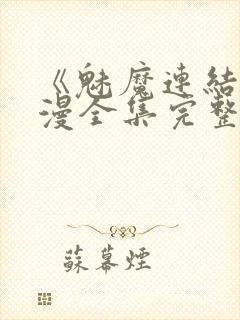 《魅魔連結
漫全集完整
蘇幕煙